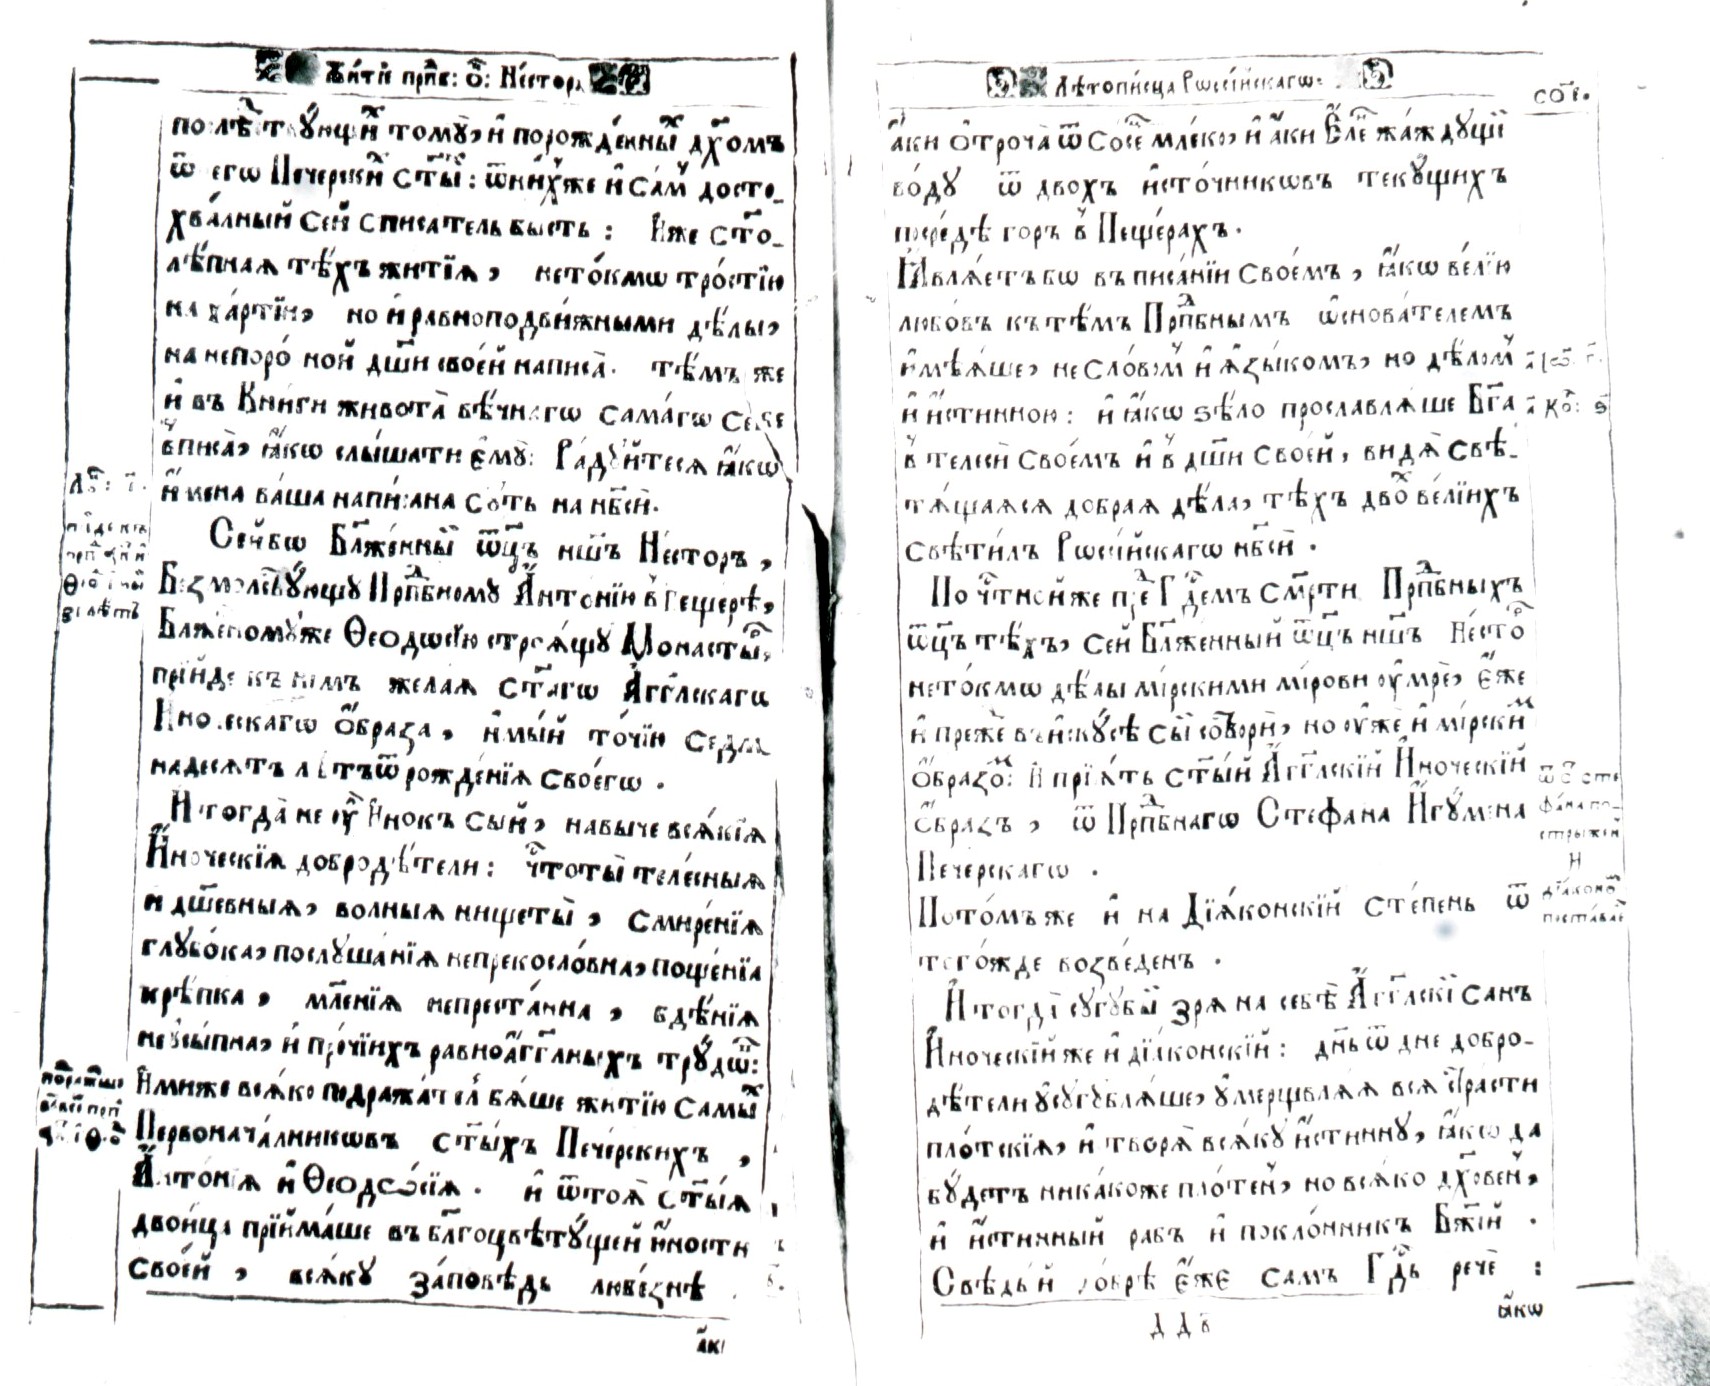 Житїѐ прпⷣв: ѻ҃: Не́стора
послѣⷣтвꙋ́ющиⷯ томꙋ̀, и҆ порожде́нныⷯ дх҃омъ
ѿ него̀ Пече́рскиⷯ ст҃ы́ⷯ: ѿ ни́хже и҆ са́мъ досто_
хва́лный сей списатель бысть : И҆́же сто_
лѣ́пная тѣ́хъ житїѧ̀, нето́кмѡ тро́стїю
на ха́ртїи, но и҆ равноподви́жными дѣ́лы,
на непоро́чной дш҃и свое́й написа̀. тѣ́мъ же
и҆ въ Кни́ги живота̀ вѣ́чнагѡ самаго̀ себе
вписа̀, ꙗ҆́кѡ слы́шати є҆мꙋ̀: Ра́дꙋйтесѧ ꙗ҆́кѡ
и҆мена ва́ша напи́сана сꙋ́ть на нб҃сѝ.
Се́й бѡ Бл҃же́нный ѻ҆ц҃ъ нш҃ъ Не́сторъ,
Безмо́лвꙋющꙋ Прпⷣбномꙋ А҆нто́нїю в̾ пеще́рѣ,
Бл҃же́номꙋже Ѳеодѡ́сїю строѧ́щꙋ Монасты́рь,
прїи́де къ ни́мъ жела́ѧ ст҃а́гѡ А҆́гг҃лскагѡ
И҆но́ческагѡ ѻ҆́браза, и҆мы́й то́чїю седмь
надесѧтъ лѣ́тъ ѿ рожде́нїѧ своегѡ̀ .
И҆ тогда̀ не ᲂу҆̀ И҆́нокъ сый, навы́че всѧ́кїѧ
И҆́ноческїѧ добродѣ́тели: чⷭ҇тоты̀ теле́сныѧ
и҆ дш҃е́вныѧ, во́лныѧ нищеты̀, смире́нїѧ
глꙋбо́ка, послꙋша́нїѧ непрекосло́вна, поще́нїѧ
крѣ́пка, мл҃е́нїѧ непреста́нна, бдѣ́нїѧ
неꙋсы́пна, и҆ про́чїихъ равноа҆гг҃лныхъ трꙋдѡ́въ:
И҆́миже всѧ́ко подража́тель бѧ́ше житїю̀ самы́ⷯ
Первонача́лникѡвъ ст҃ы́хъ Пече́рскихъ ,
А҆нто́нїѧ и҆ Ѳеодѡ́сїѧ . и҆ ѿ тоѧ̀ ст҃ы́ѧ
дво́ица прїима́ше въ бл҃гоцвѣтꙋ́щей ю҆́ности
свое́й , всѧ́кꙋ за́повѣдь любе́знѣ
а҆́ки
пⷪ҇дража́ше
Лѣтопи́сца Рѡссі́йскагѡ:
а҆́ки ѻ҆троча̀ ѿ сосе́цъ млеко, и҆ а҆́ки Є҆ле́нь жа́ждꙋщїй
во́дꙋ ѿ двохъ и҆сто́чникѡвъ текꙋ́щихъ
посре́дѣ горъ в̾ Пеще́рахъ.
Ꙗ҆влѧ́етъ бѡ въ писа́нїи свое́мъ, ꙗ҆́кѡ ве́лїю
любо́въ къ тѣ́мъ Прпⷣбнымъ ѡ҆снова́телемъ
и҆мѣѧ́ше, не сло́вомъ и҆ ѧ҆зы́комъ, но дѣ́ломъ
и҆ и҆́стинною: и҆ ꙗ҆́кѡ ѕѣ́ло прославлѧ́ше Бг҃а
в̾ телесѝ свое́мъ и҆ в̾ дш҃и свое́й, ви́дѧ свѣ_
тѧ́щаѧсѧ добраѧ дѣ́ла, тѣ́хъ двоⷯ ве́лїихъ
свѣти́лъ Рѡссі́йскагѡ нб҃сѐ .
По чⷭ҇тнѣ́й же пре Гдⷭ҇емъ сме́рти Прпⷣбныхъ
ѻ҆ц҃ъ тѣ́хъ, сей Бл҃же́нный ѻ҆ц҃ъ нш҃ъ Не́стоⷬ
нето́кмѡ дѣ́лы мі́рскими мі́рови ᲂу҆́мре, є҆́же
и҆ пре́же въ и҆скꙋ́сѣ сы́й сотворѝ, но ᲂу҆жѐ и҆ мі́рскиⷨ
ѻ҆́бразоⷨ: И҆ прїѧ́тъ ст҃ы́й А҆́гг҃лскїй И҆́ноческїй
ѻ҆́бразъ , ѿ Прпⷣбнагѡ Сте́фана И҆гꙋ́мена
Пече́рскагѡ .
Пото́мъ же и҆ на Дїѧ́конскїй сте́пень ѿ
тогѡ́жде возведе́нъ .
И҆ тогда̀ сꙋгꙋ́бый зрѧ̀ на себѣ̀ А҆́гг҃лскїй санъ
И҆́ноческїй же и҆ дїа́конскїй : дн҃ь ѿ дне добро_
дѣ́тели ᲂу҆сꙋгꙋблѧ́ше, ᲂу҆мерщвлѧ́ѧ всѧ стра́сти
пло́тскїѧ, и҆ творѧ̀ всѧ́кꙋ и҆́стиннꙋ, ꙗ҆́кѡ да
бꙋ́детъ ника́коже пло́тенъ, но всѧ́ко дх҃о́венъ,
и҆ и҆́стинный рабъ и҆ покло́нникъ Бж҃їй .
Свѣ́дый до́брѣ є҆́же самъ Гдⷭ҇ь речѐ :
ꙗ҆́кѡ
ѿ с҃ Сте
фа́на по_
стри́женъ
И
дїа́кономъ
поста́вленъ